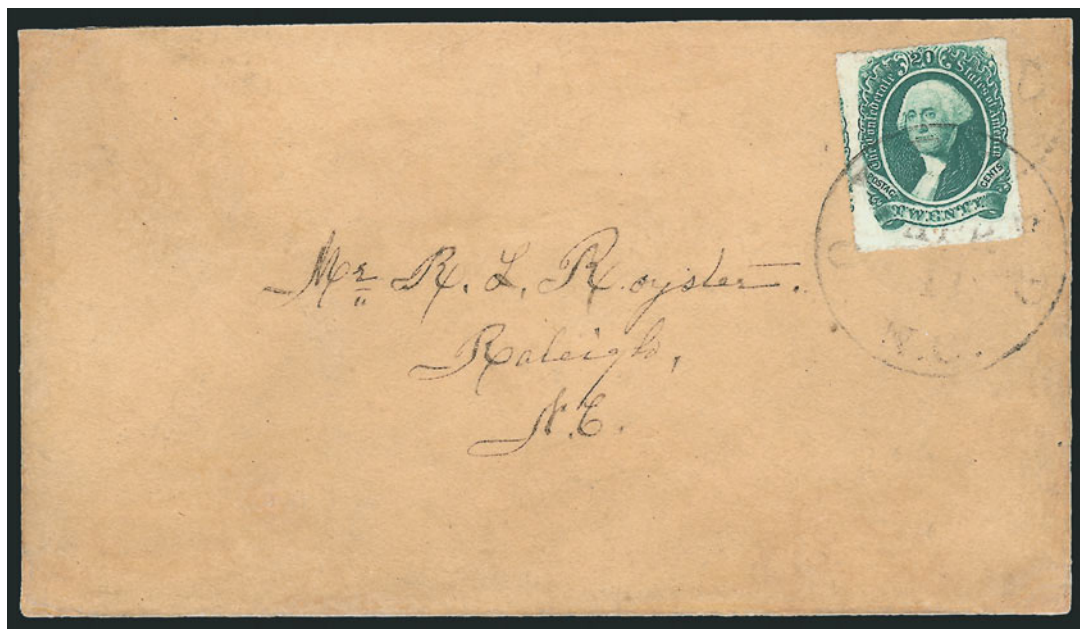 20
The Confederate States of America
POSTAGE CENTS
TWENTY
Mr. R. L. Royster.
Raleigh,
N.C.
N.C.